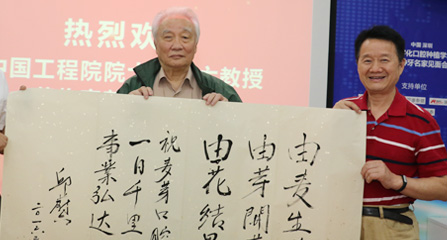 热烈欢
中国工程院院
教授
中国 深圳
化口腔种植学
牙名家见面会
支持单位
由麦生
由芽開
由花結
祝麦芽口腔
一日千里
事業弘达
邱蔚
二〇一六